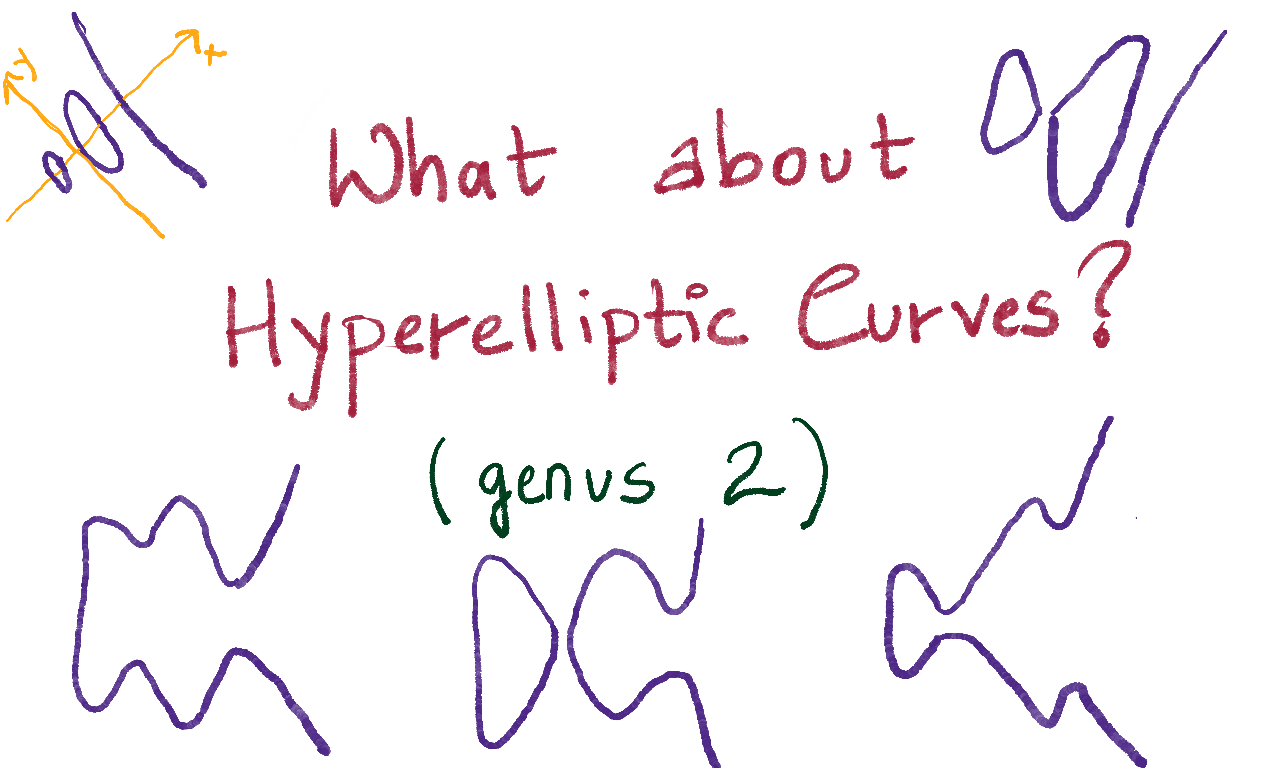 y x
What about
Hyperelliptic Curves?
(genus 2)